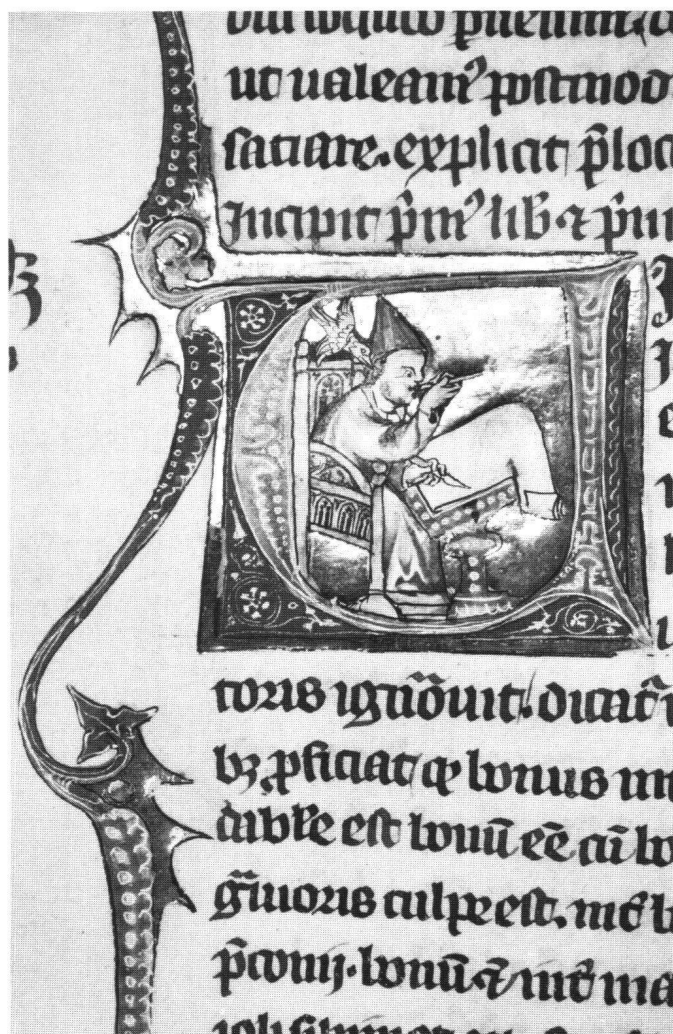 ut ualeam᾽ postmod
satiare. explicit p̄loc
Incipit p̄m᾽ lib̄ ⁊ p̄m
toris ignōuit. dicat̄
bꝫ ꝓficiat qꝫ bonus in
dab̄le est bonū eē cū bo
g̃uioris culpe est. int̄ b
p̄conij. bonū ⁊ int̄ ma